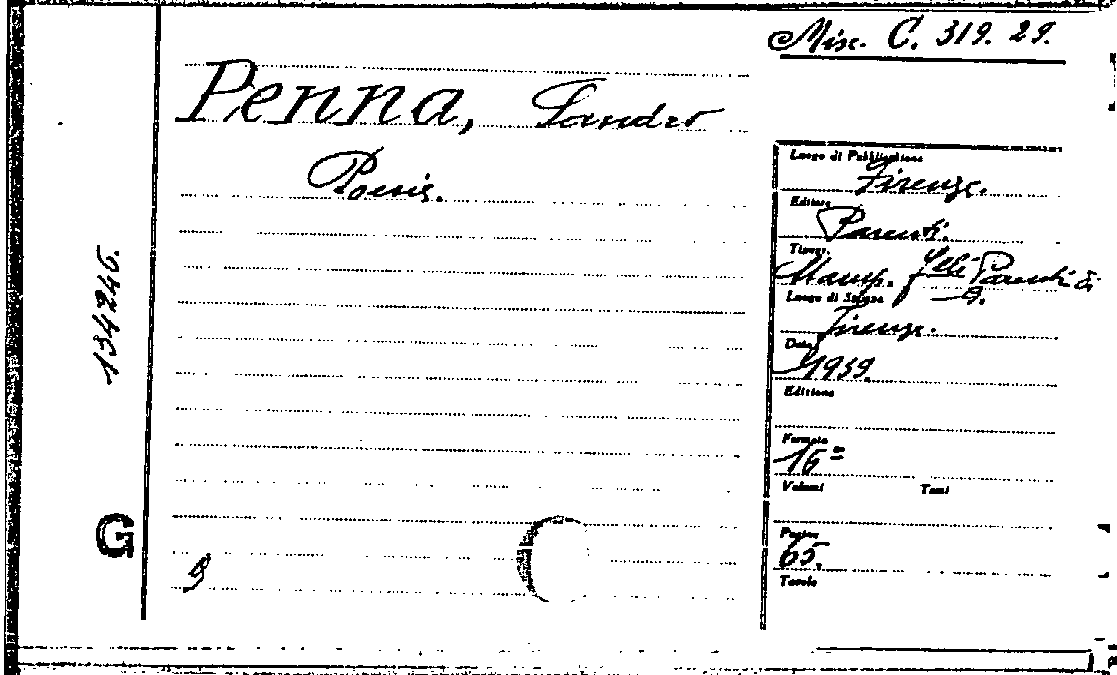 Misc. C. 319. 29.
Penna, Sandro
Poesie.
134246.
G
Luogo di Pubblicazione
Firenze.
Editore
Parenti.
Stamp. F.lli Parenti di
G.
Luogo di Stampa
Firenze.
Data
1939.
Edizione
Formato
16°
Volumi Tomi
Pagine
65.
Tavole